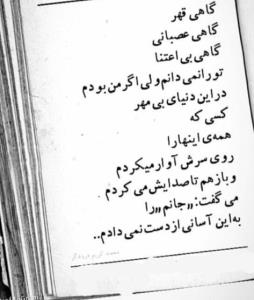 گاهی قهر
گاهی عصبانی
گاهی بی اعتنا
تو را نمی دانم ولی اگر من بودم
در این دنیای بی مهر
کسی که
همه‌ی اینها را
روی سرش آوار میکردم
و باز هم تا صدایش می کردم
می گفت: „جانم„ را
به این آسانی از دست نمی دادم..